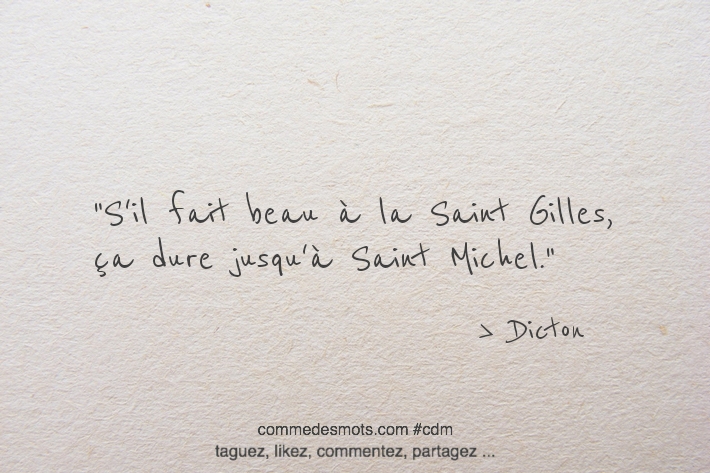 "S'il fait beau à la Saint Gilles,
ça dure jusqu'à Saint Michel."
> Dicton
commedesmots.com #cdm
taguez, likez, commentez, partagez ...